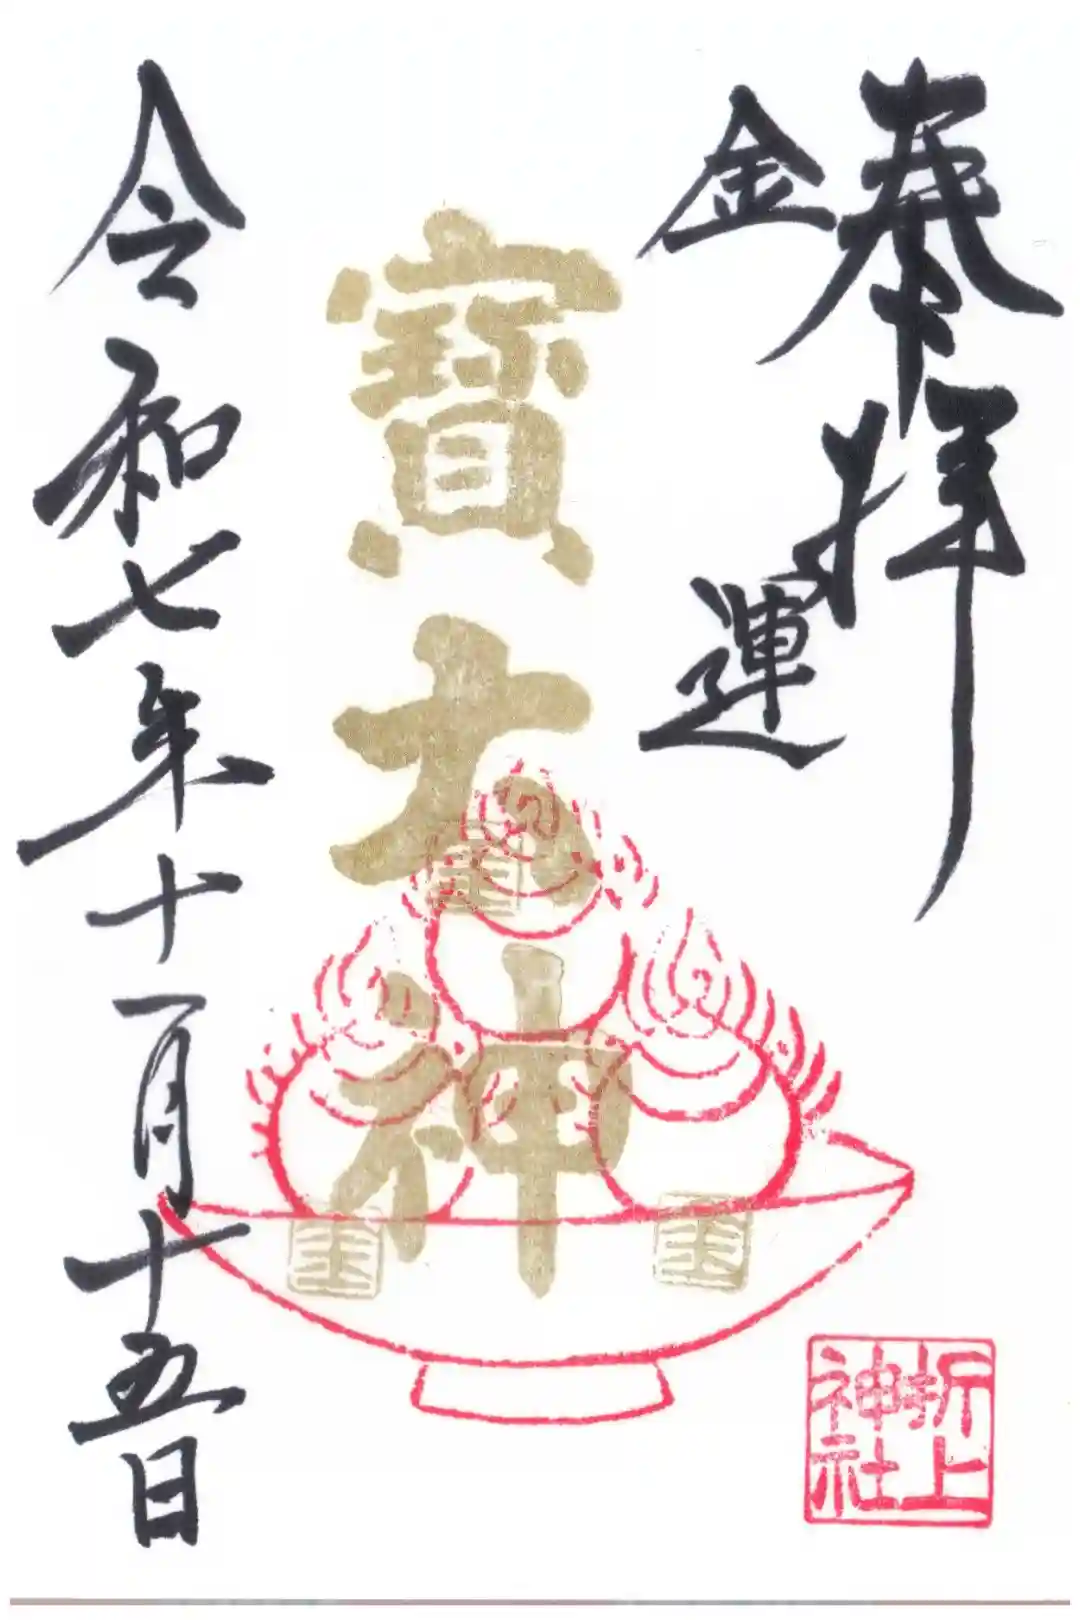 奉拝
金運
寶大神
折上
神社
令和七年十一月十五日